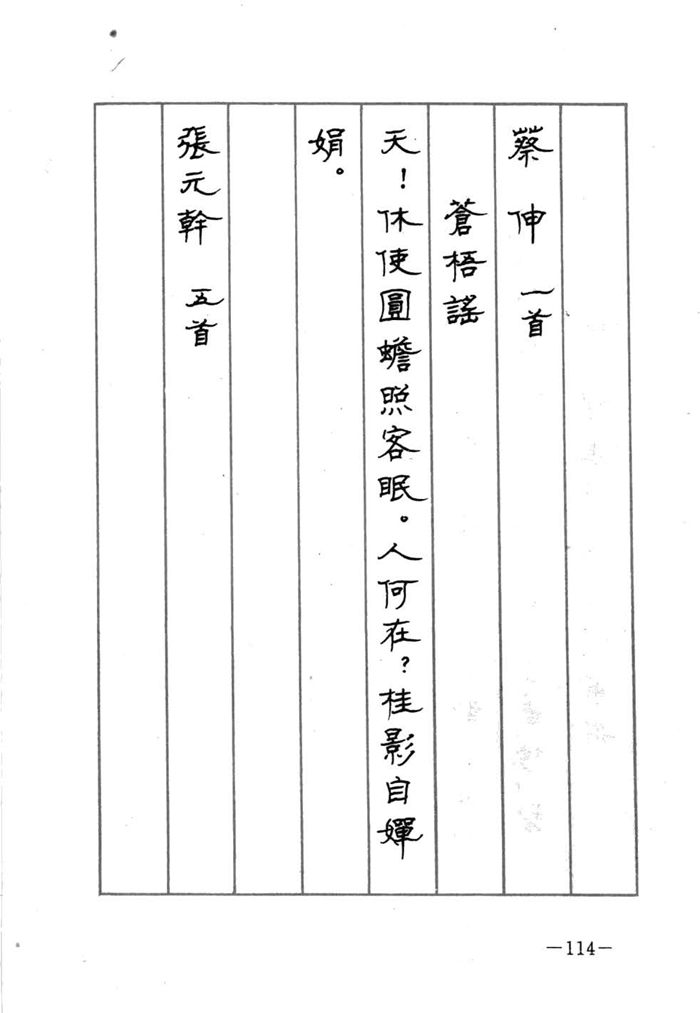 蔡伸 一首
蒼梧謠
天！休使圓蟾照客眠。人何在？桂影自嬋
娟。
張元幹 五首
—114—